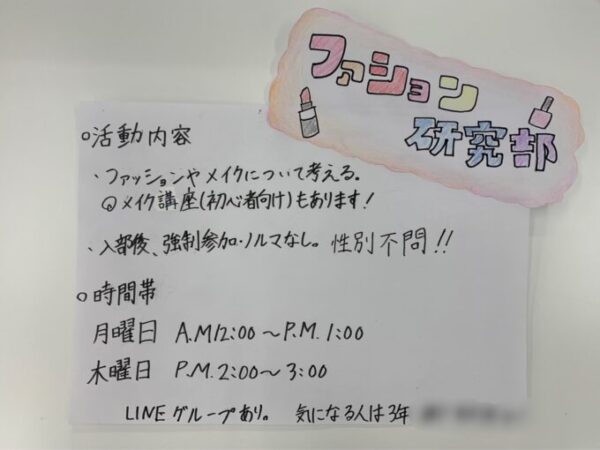 ファション
研究部
○活動内容
・ファッションやメイクについて考える。
◎メイク講座(初心者向け)もあります！
・入部後、強制参加・ノルマなし。性別不問!!
○時間帯
月曜日 A.M12:00～P.M.1:00
木曜日 P.M.2:00～3:00
LINEグループあり。 気になる人は3年